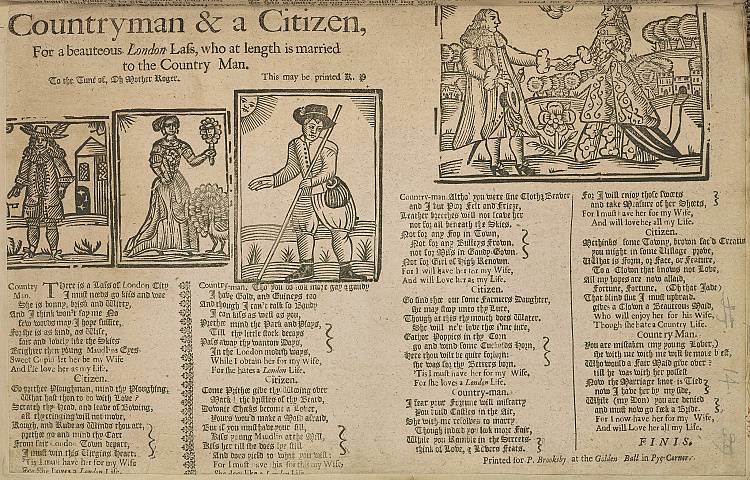 Countryman & a Citizen,
For a beauteous London Lass, who at length is married
to the Country Man.
To the Tune of, Oh Mother Roger. This may be printed R. P
Country Man. There is a Lass of London City
I must needs go kiss and wooe
She is bonny, bliss and Witty,
And I think won't say me No
few words may I hope suffice,
For she is as kind, as Wise,
fair and lovely like the Skies
Brighter then young Maudlins Eyes
Sweet Cupid let her be my Wife
And I'le love her as my Life.
Citizen.
Go prethe Ploughman, mind thy Ploughing,
What hast thou to do with Love?
Scratch thy Head, and leave off Bowing,
all thy cringing will not move,
Rough, and Rude as Winds thou art,
prethe go and mind thy Cart
From fair London Town depart,
I must win this Virgins Heart:
Tis I must have her for my Wife
For She Loves a London Life.
Country-man. Tho you do look more gay & gaudy
I have Gold, and Guineys too
And though I can't talk so Bawdy
I can kiss as well as you,
Prethe mind the Park and Plays,
Till thy little stock decays
Pass away thy wanton Ways,
In the London modish ways,
While I obtain her for my wife,
For she hates a London Life.
Citizen.
Come Prithe give thy Wooing over
Mark! the bristles of thy Beard,
Downie Cheeks become a Lover,
Yours wou'd make a Maid afraid,
But if you must have your fill,
Kiss young Maudlin at the Mill,
Kiss her till she does lye still
And does yield to what you will:
For I must have this for my Wife
She does like a London Life.
Country-man. Altho' you were fine Cloth & Beaver
and I but Poor Felt and Frieze,
Leather breeches will not leave her
nor for all beneath the Skies.
Not for any Fop in Town,
Not for any Bulleys Frown,
not for Miss in Gaudy Gown.
Not for Girl of high Renown.
For I will have her for my Wife,
And will Love her as my Life.
Citizen.
Go find thee out some Farmers Daughter,
she may stoop unto thy Lure,
Though at this thy mouth does Water.
She will ne'r love thee I'me sure,
Gather Poppies in thy Corn
go and wind some Cuckolds Horn,
Here thou wilt be quite forlorn
she was for thy Betters born.
Tis I must have her for my Wife,
For she loves a London Life.
Country-man.
I fear your Fortune will miscarry
You build Castles in the Air,
She with me resolves to marry
Though indeed you look most Fair,
While you Ramble in the Streets
think of Love, & Lovers Feats.
For I will enjoy those sweets
and take Measure of her Sheets,
For I must have her for my Wife,
And will love her all my Life.
Citizen.
Methinks some Towny, brown fac'd Creature
you might in some Village prove,
What is Form, or Face, or Feature,
To a Clown that knows not Love,
All my hopes are now assaid,
Fortune, Fortune, (Oh that Jade)
That blind slut I must upbraid.
gives a Clown a Beautious Maid,
Who will enjoy her for his Wife,
Though she hates a Country Life.
Country Man.
You are mistaken (my young Lover,)
she with me with me be more blest,
Who would a Fair Maid give over?
till he was with her possest
Now the Marriage knot is Tied
now I have her by my side,
While (my Boy) you are denied
and must now go seek a Bride.
For I now have her for my Wife,
And will Love her all my Life.
FINIS.
Printed for P. Brooksby at the Golden Ball in Pye-Corner.